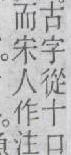 古字從十口
而宋人作注